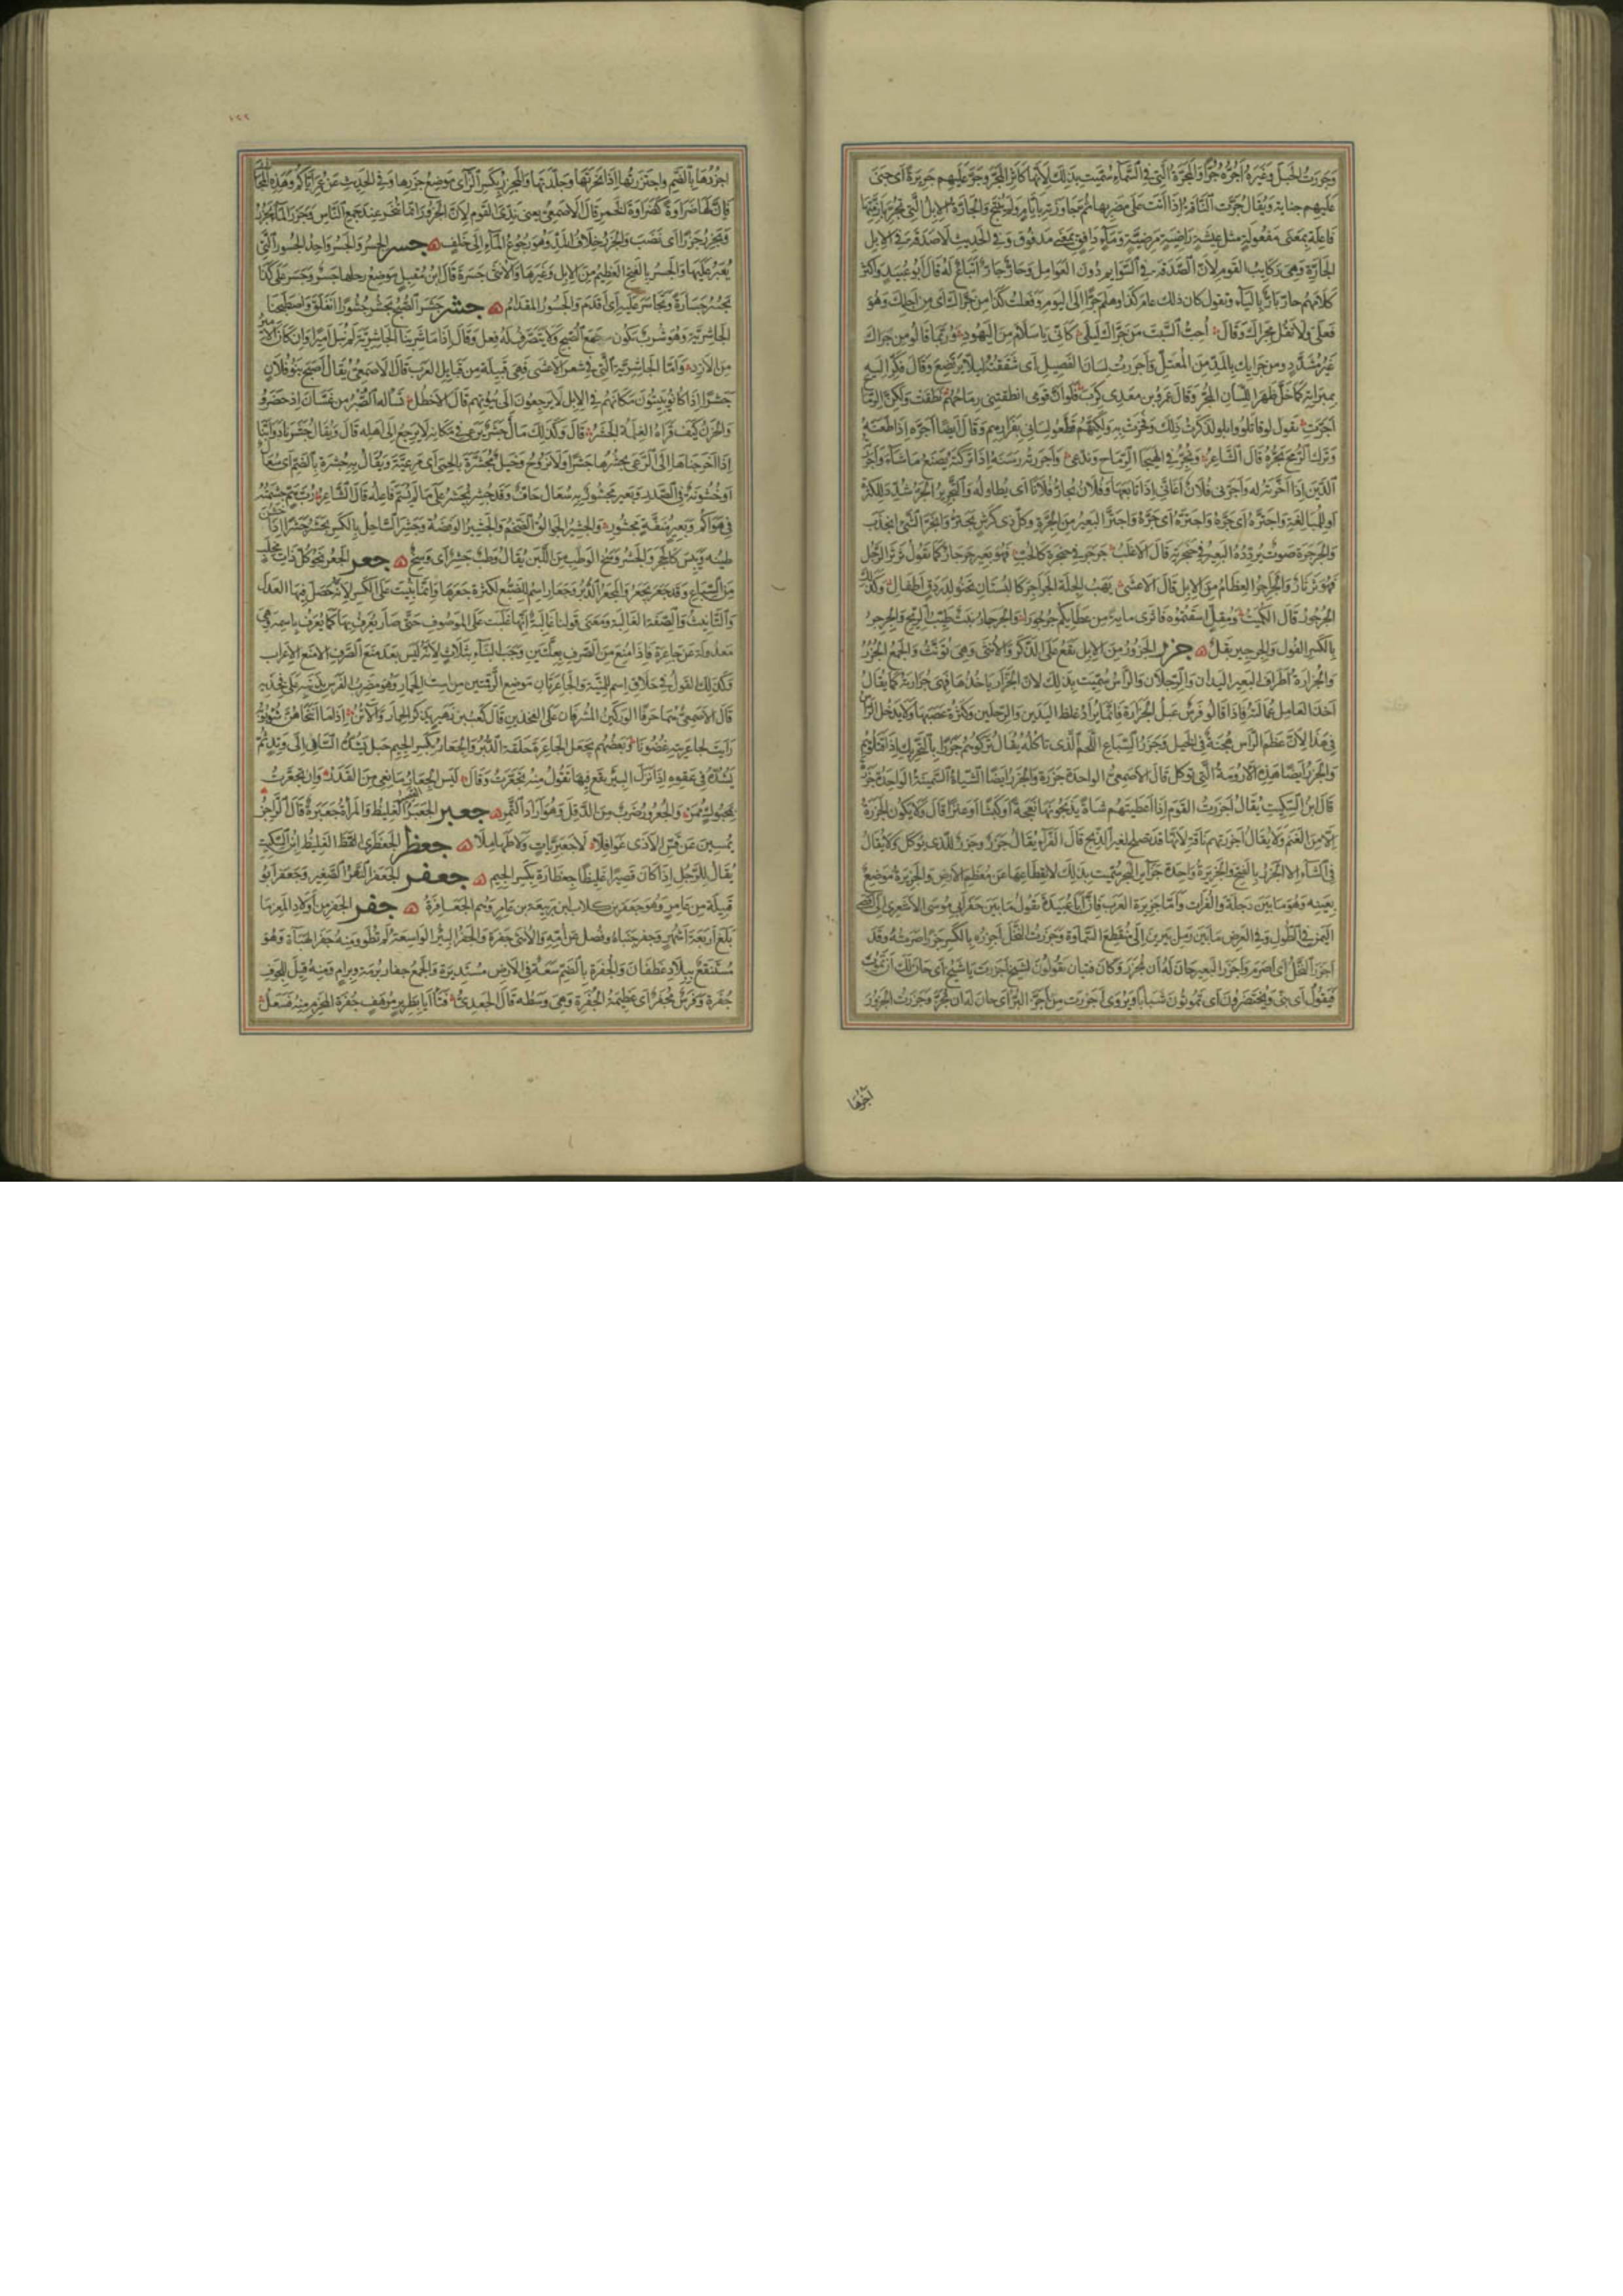 وجررت الحبل وغيره اجره جرا والمجرة التي في السماء سميت بذلك لانها كاثر المجر وجر عليهم جريرة اى جنى
عليهم جناية ويقال جرت الناقة اذا اتت على مضربها ثم جاوزته بايام ولم تنتج والجارة الابل التي تجر بازمتها
فاعلة بمعنى مفعولة مثل عيشة راضية مرضية وماء دافق بمعنى مدفوق وفي الحديث لا صدقة في الابل
الجارة وهي ركايب القوم لان الصدقة في السوايم دون العوامل وحار جار اتباع له قال ابو عبيد واكثر
كلامهم حار يار بالياء وتقول كان ذلك عام كذا وهلم جرا الى اليوم وفعلت كذا من جراك اى من اجلك وهو
فعلى ولا تقل مجراك وقال احب السبت من جراك ليلى كانى يا سلام من اليهود وربما قالوا من جراك
غير مشدد ومن جرايك بالمد من المعتل واجررت لسان الفصيل اى شققته ليلا يرتضع وقال فكر اليه
بمبراته كما خل ظهر اللسان المجر وقال عمرو بن معدى كرب فلو ان قومى انطقتنى رماحهم نطقت ولكن الرماح
اجرت يقول لو قاتلوا وابلوا لذكرت ذلك وفخرت به ولكنهم قطعوا لسانى بفرارهم وقال ايضا اجره اذا طعنه
وترك الرمح يجره قال الشاعر ونجر في الهيجا الرماح وندعى واجررته رسنه اذا تركته يصنع ما شاء واجره
الدين اذا اخرته له واجرنى فلان اغانى اذا تابعها وفلان يجار فلانا اى يطاوله والتجرير الجر شدد للكثرة
او للمبالغة واجتره اى جره واجتر البعير من الجرة وكل ذى كرش يجتر وانجر الشئ انجذب
والجرجرة صوت يردده البعير في حنجرته قال الاغلب جرجر في حنجرة كالحب فهو بعير جرجار كما تقول ثرثر الرجل
فهو ثرثار والجراجر العظام من الابل قال الاعشى يهب الجلة الجراجر كالبستان تحنو لدردق اطفال وكذلك
الجرجور قال الكميت ومقل اسقتموه فاثرى ماية من عطايكم جرجورا والجرجار نبت طيب الريح والجرجر
بالكسر الفول والجرجير بقل جزر الجزور من الابل يقع على الذكر والانثى وهي تونث والجمع الجزر
والجزارة اطراف البعير اليدان والرجلان والراس سميت بذلك لان الجزار ياخذها فهى جزارته كما يقال
اخذ العامل عمالته فاذا قالوا فرس عبل الجزارة فانما يراد غلظ اليدين والرجلين وكثرة عصبهما ولا يدخل الراس
في هذا لان عظم الراس هجنة في الخيل وجزر السباع اللحم الذى تاكله يقال تركوهم جزرا بالتحريك اذا قتلوهم
والجزر ايضا هذه الارومة التي توكل قال الاصمعى الواحدة جزرة والجزر ايضا الشياه السمينة الواحدة جزرة
قال ابن السكيت يقال اجزرت القوم اذا اعطيتهم شاة يذبحونها نعجة او كبشا او عنزا قال ولا يكون الجزرة
الا من الغنم ولا يقال اجزرتهم ناقة لانها قد تصلح لغير الذبح قال الفراء يقال جزر وجزر للذى يوكل ولا يقال
في الشاء الا الجزر بالفتح والجزيرة واحدة جزاير البحر سميت بذلك لانقطاعها عن معظم الارض والجزيرة موضع
بعينه وهو ما بين دجلة والفرات واما جزيرة العرب فان ابا عبيدة يقول ما بين حفر ابى موسى الاشعرى الى اقصى
اليمن في الطول وفي العرض ما بين رمل يبرين الى منقطع السماوة وجزرت النخل اجزره بالكسر جزرا صرمته وقد
اجزر النخل اى اصرم واجزر البعير حان له ان يجزر وكان فتيان يقولون لشيخ اجزرت يا شيخ اى حان لك ان تموت
فيقول اى بنى وتختضرون اى تموتون شبابا ويروى اجززت من اجز البر اى حان له ان يجز وجزرت الجزور
اجزرها
١٢٢
اجزرها بالضم واجتزرتها اذا نحرتها وجلدتها والمجزر بكسر الزاى موضع جزرها وفي الحديث عن عمر اياكم وهذه المجازر
فان لها ضراوة كضراوة الخمر قال الاصمعى يعنى ندى القوم لان الجزور انما تنحر عند جمع الناس وجزر الماء يجزر
ويجزر جزرا اى نضب والجزر خلاف المد وهو رجوع الماء الى خلف جسر الجسر والجسر واحد الجسور التي
يعبر عليها والجسر بالفتح العظيم من الابل وغيرها والانثى جسرة قال ابن مقبل موضع رحلها جسر وجسر على كذا
يجسر جسارة وتجاسر عليه اى اقدم والجسور المقدام جشر جشر الصبح يجشر جشورا انفلق واصطبحنا
الجاشرية وهو شرب يكون مع الصبح ولا يتصرف له فعل وقال اذا ما شربنا الجاشرية لم نبل اميرا وان كان الامير
من الازد واما الجاشرية التي في شعر الاعشى فهى قبيلة من قبايل العرب قال الاصمعى يقال اصبح بنو فلان
جشرا اذا كانوا يبيتون مكانهم في الابل لا يرجعون الى بيوتهم قال الاخطل تساله الصبر من غسان اذ حضروا
والحزن كيف قراه الغلمة الجشر قال وكذلك مال جشر يرعى في مكانه لا يرجع الى اهله قال ويقال جشرنا دوابنا
اذا اخرجناها الى الرعى نجشرها جشرا ولا تروح وخيل مجشرة بالحمى اى مرعية ويقال به جشرة بالضم اى سعال
او خشونة في الصدر وبعير مجشور به سعال جاف وقد جشر يجشر على ما لم يسم فاعله قال الشاعر رب هم جشمته
في هواكم وبعير منفه مجشور والجشير الجوالق الضخم والجشير الوفضة وجشر الساحل بالكسر يجشر جشرا اذا خشن
طينه ويبس كالحجر والجشر وسخ الوطب من اللبن يقال وطب جشر اى وسخ جعر الجعر نجو كل ذات مخلب
من السباع وقد جعر يجعر والمجعر الدبر وجعار اسم للضبع لكثرة جعرها وانما بنيت على الكسر لانه حصل فيها العدل
والتانيث والصفة الغالبة ومعنى قولنا غالبة انها غلبت على الموصوف حتى صار يعرف بها كما يعرف باسمه وهى
معدولة عن جاعرة فاذا منع من الصرف بعلتين وجب البناء بثلاث لانه ليس بعد منع الصرف الا منع الاعراب
وكذلك القول في حلاق اسم للمنية والجاعرتان موضع الرقمتين من است الحمار وهو مضرب الفرس بذنبه على فخذيه
قال الاصمعى هما حرفا الوركين المشرفان على الفخذين قال كعب بن زهير يذكر الحمار والاتن اذا ما انتحاهن شؤبوبه
رايت لجاعرتيه غضونا وبعضهم يجعل الجاعرة حلقة الدبر والجعار بكسر الجيم حبل يشد الساقى الى وتد ثم
يشده في حقوه اذا نزل البئر يقع فيها تقول منه تجعرت وقال ليس الجعار مانعى من القدر وان تجعرت
بمحبوك ممر والجعرور ضرب من الدقل وهو اردا التمر جعبر الجعبر القصير الغليظ والمراة جعبرة قال الراجز
يمسين عن قس الاذى غوافلا لا جعبريات ولا طهاملا جعظر الجعظرى الفظ الغليظ ابن السكيت
يقال للرجل اذا كان قصيرا غليظا جعظارة بكسر الجيم جعفر الجعفر النهر الصغير وجعفر ابو
قبيلة من عامر وهو جعفر بن كلاب بن ربيعة بن عامر وهم الجعافرة جفر الجفر من اولاد المعز ما
بلغ اربعة اشهر وجفر جنباه وفصل عن امه والانثى جفرة والجفر البئر الواسعة لم تطو ومنه جفر الهباءة وهو
مستنقع ببلاد غطفان والجفرة بالضم سعة في الارض مستديرة والجمع جفار برمة وبرام ومنه قيل للجوف
جفرة وفرس مجفر اى عظيمة الجفرة وهى وسطه قال الجعدى